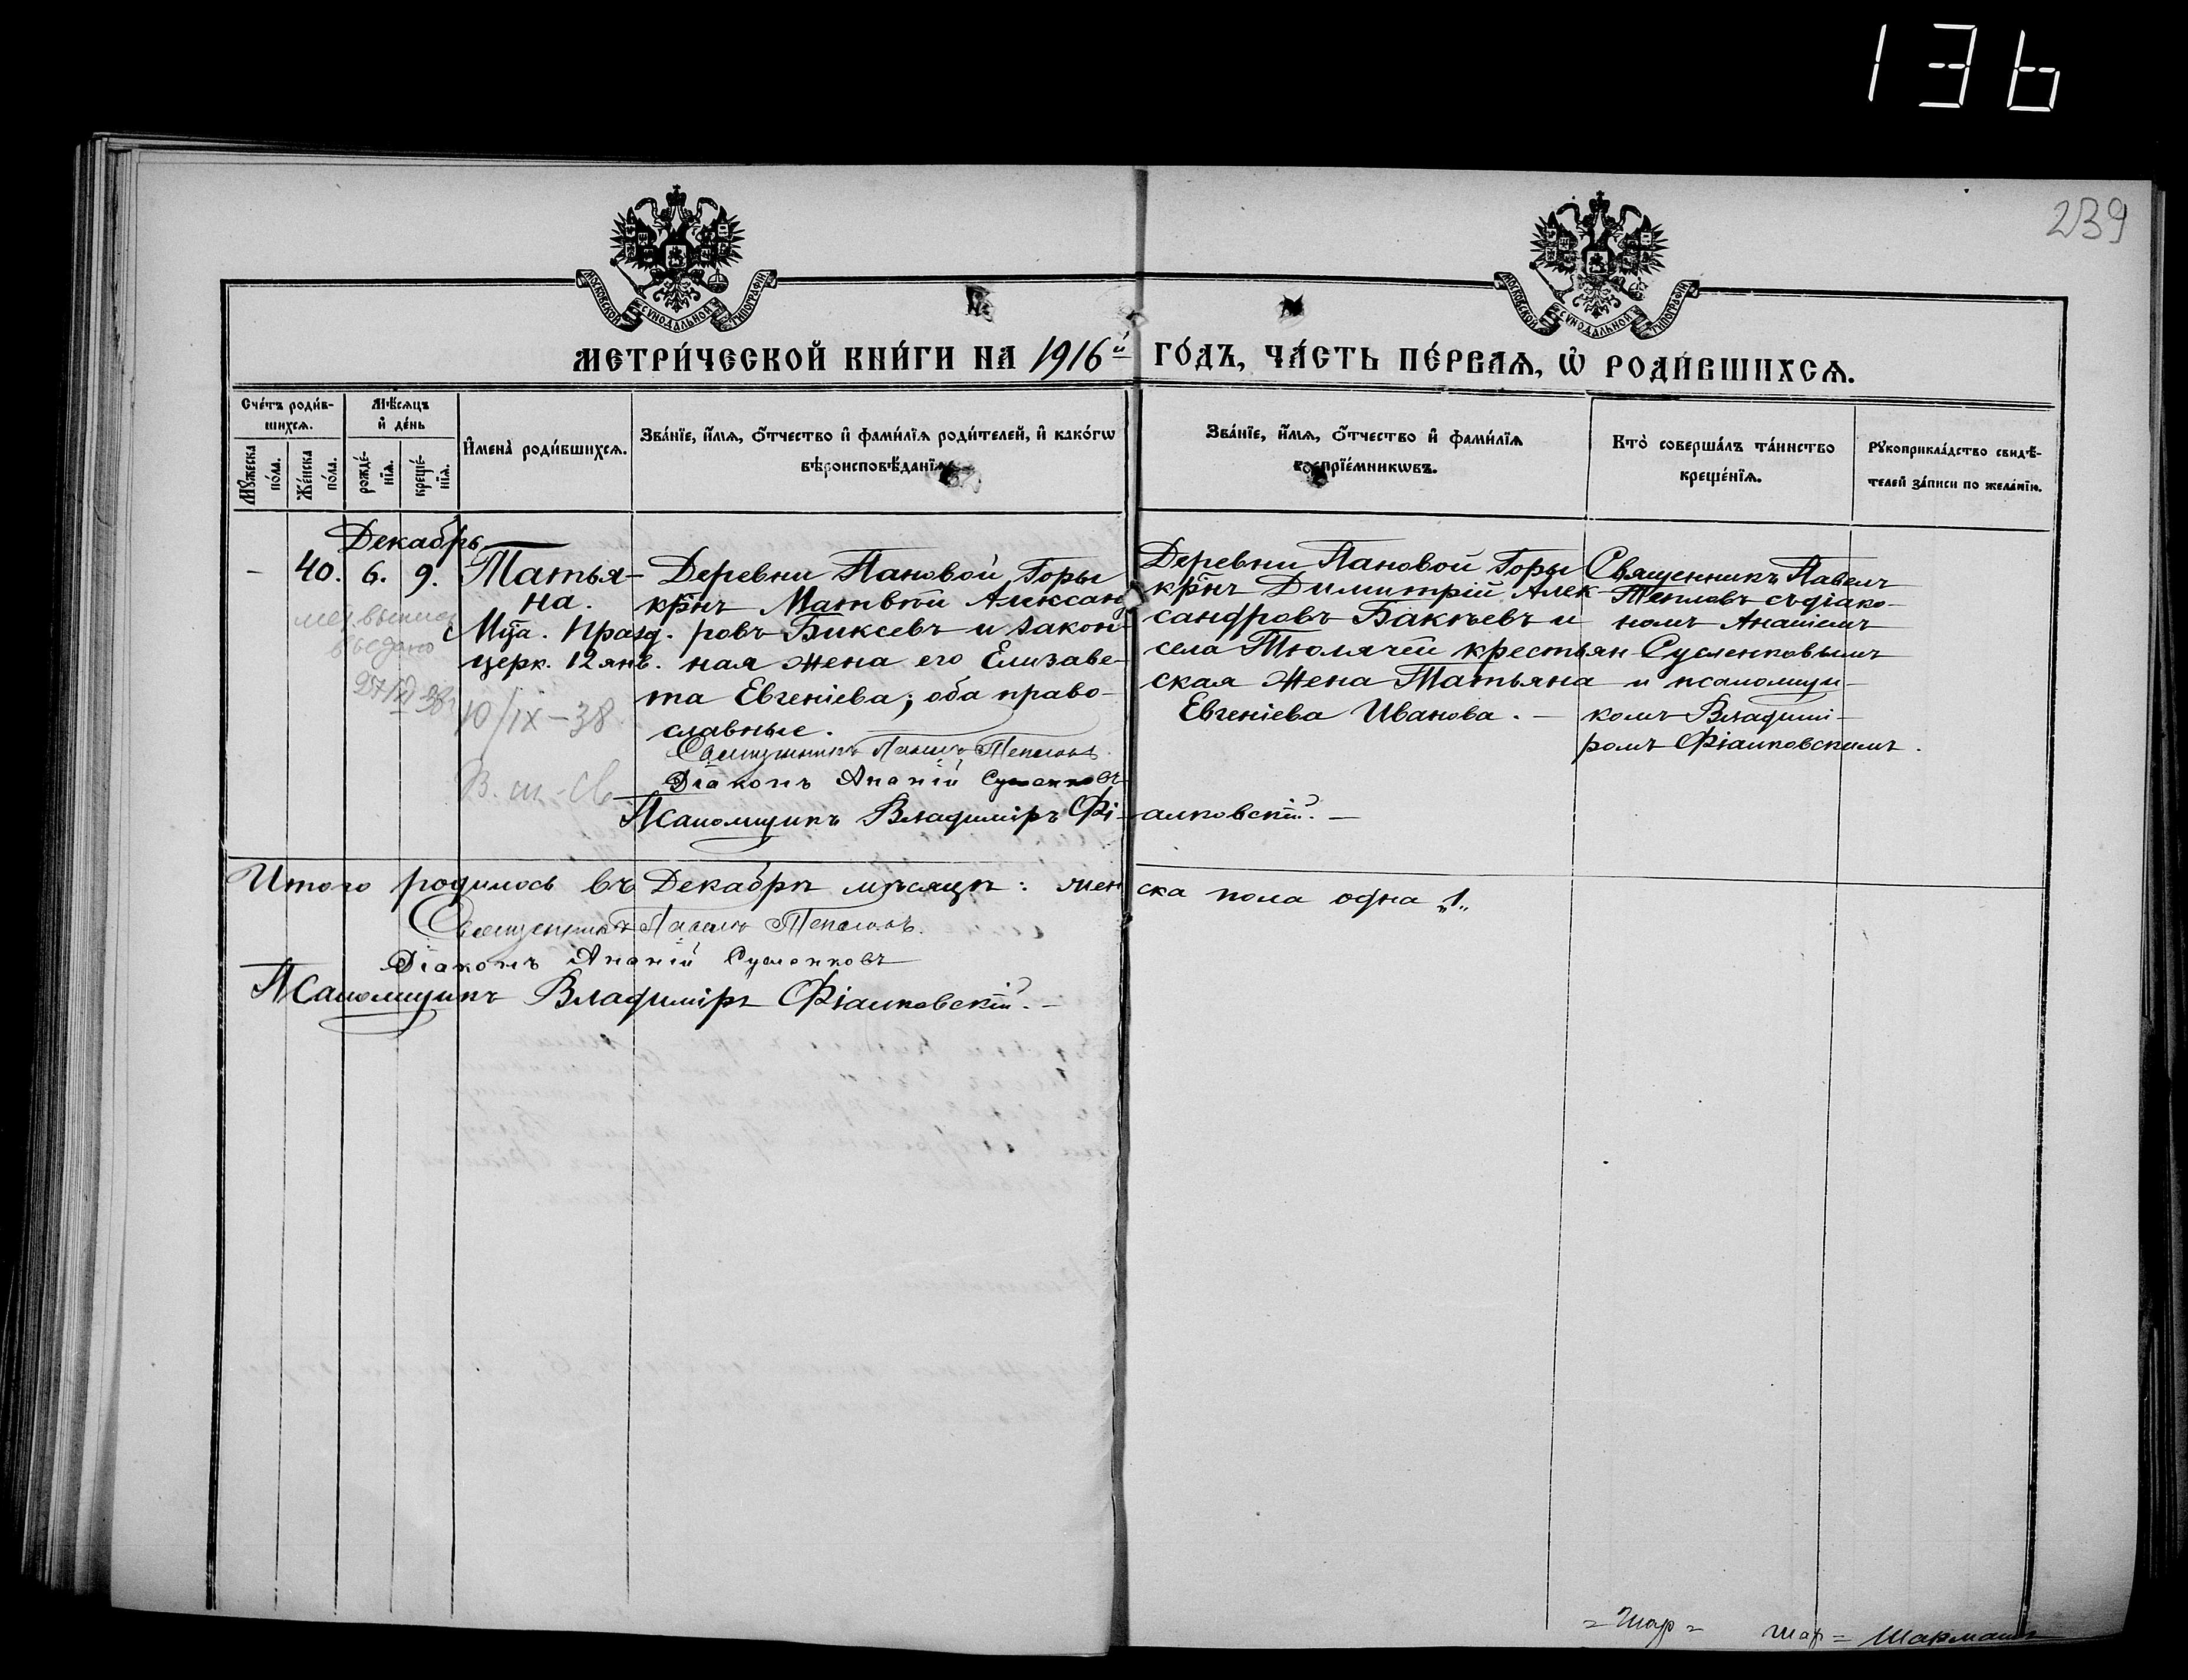 136
239
МОСКОВСКОЙ СУНОДАЛЬНОЙ ТИПОГРАФІИ
МОСКОВСКОЙ СУНОДАЛЬНОЙ ТИПОГРАФІИ
МЕТРИ́ЧЕСКОЙ КНИ́ГИ НА 1916й ГО́ДЪ, ЧА́СТЬ ПЕ́РВАѦ, Ѡ РОДИ́ВШИХСѦ.
Сче́тъ роди́в-
шихсѧ.
Мꙋ́жеска
по́ла.
Же́нска
по́ла.
Мѣ́сѧцъ
и҆ де́нь
рожде́-
нїѧ.
креще́-
нїѧ.
И҆мена̀ роди́вшихсѧ.
Зва́нїе, и҆́мѧ, ѻ҆́тчество и҆ фами́лїѧ роди́телей, и҆ како́гѡ
вѣроисповѣ́данїѧ.
Зва́нїе, и҆́мѧ, ѻ҆́тчество и҆ фами́лїѧ
воспрїе́мникѡвъ.
Кто̀ соверша́лъ та́инство
креще́нїѧ.
Рꙋкоприкла́дство свидѣ́-
телей за́писи по жела́нїю.
Декабрь
- 40. 6. 9. Татья-
на.
Мца. Празд.
церк. 12 янв.
Деревни Пановой Горы
крнъ Матвѣй Александ
ровъ Биксевъ и закон-
ная жена его Елизаве-
та Евгеніева; оба право-
славные.
Священникъ Павелъ Тепловъ
Діаконъ Ананій Сусленковъ
Псаломщикъ Владиміръ Фі-алковскій. -
Деревни Пановой Горы
крнъ Димитрій Алек-
сандровъ Бакѣевъ и
села Тюлячей крестьян-
ская жена Татьяна
Евгеніева Иванова. -
Священникъ Павелъ
Тепловъ съ діако-
номъ Ананіемъ
Сусленковымъ
и псаломщи-
комъ Владимі-
ромъ Фіалковскимъ.
выдано
10/IX-38
Итого родилось въ Декабрѣ мѣсяцѣ: жен ска пола одна „1„
Священникъ Павелъ Тепловъ.
Діаконъ Ананій Сусленковъ
Псаломщикъ Владиміръ Фіалковскій. -
= Шар = шар =